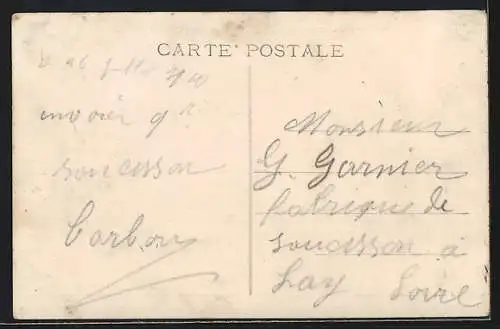 CARTE POSTALE
le 26
envoier
soucisson
Carbon
Monsieur
G. Garnier
fabrique de
soucisson à
Lay Loire